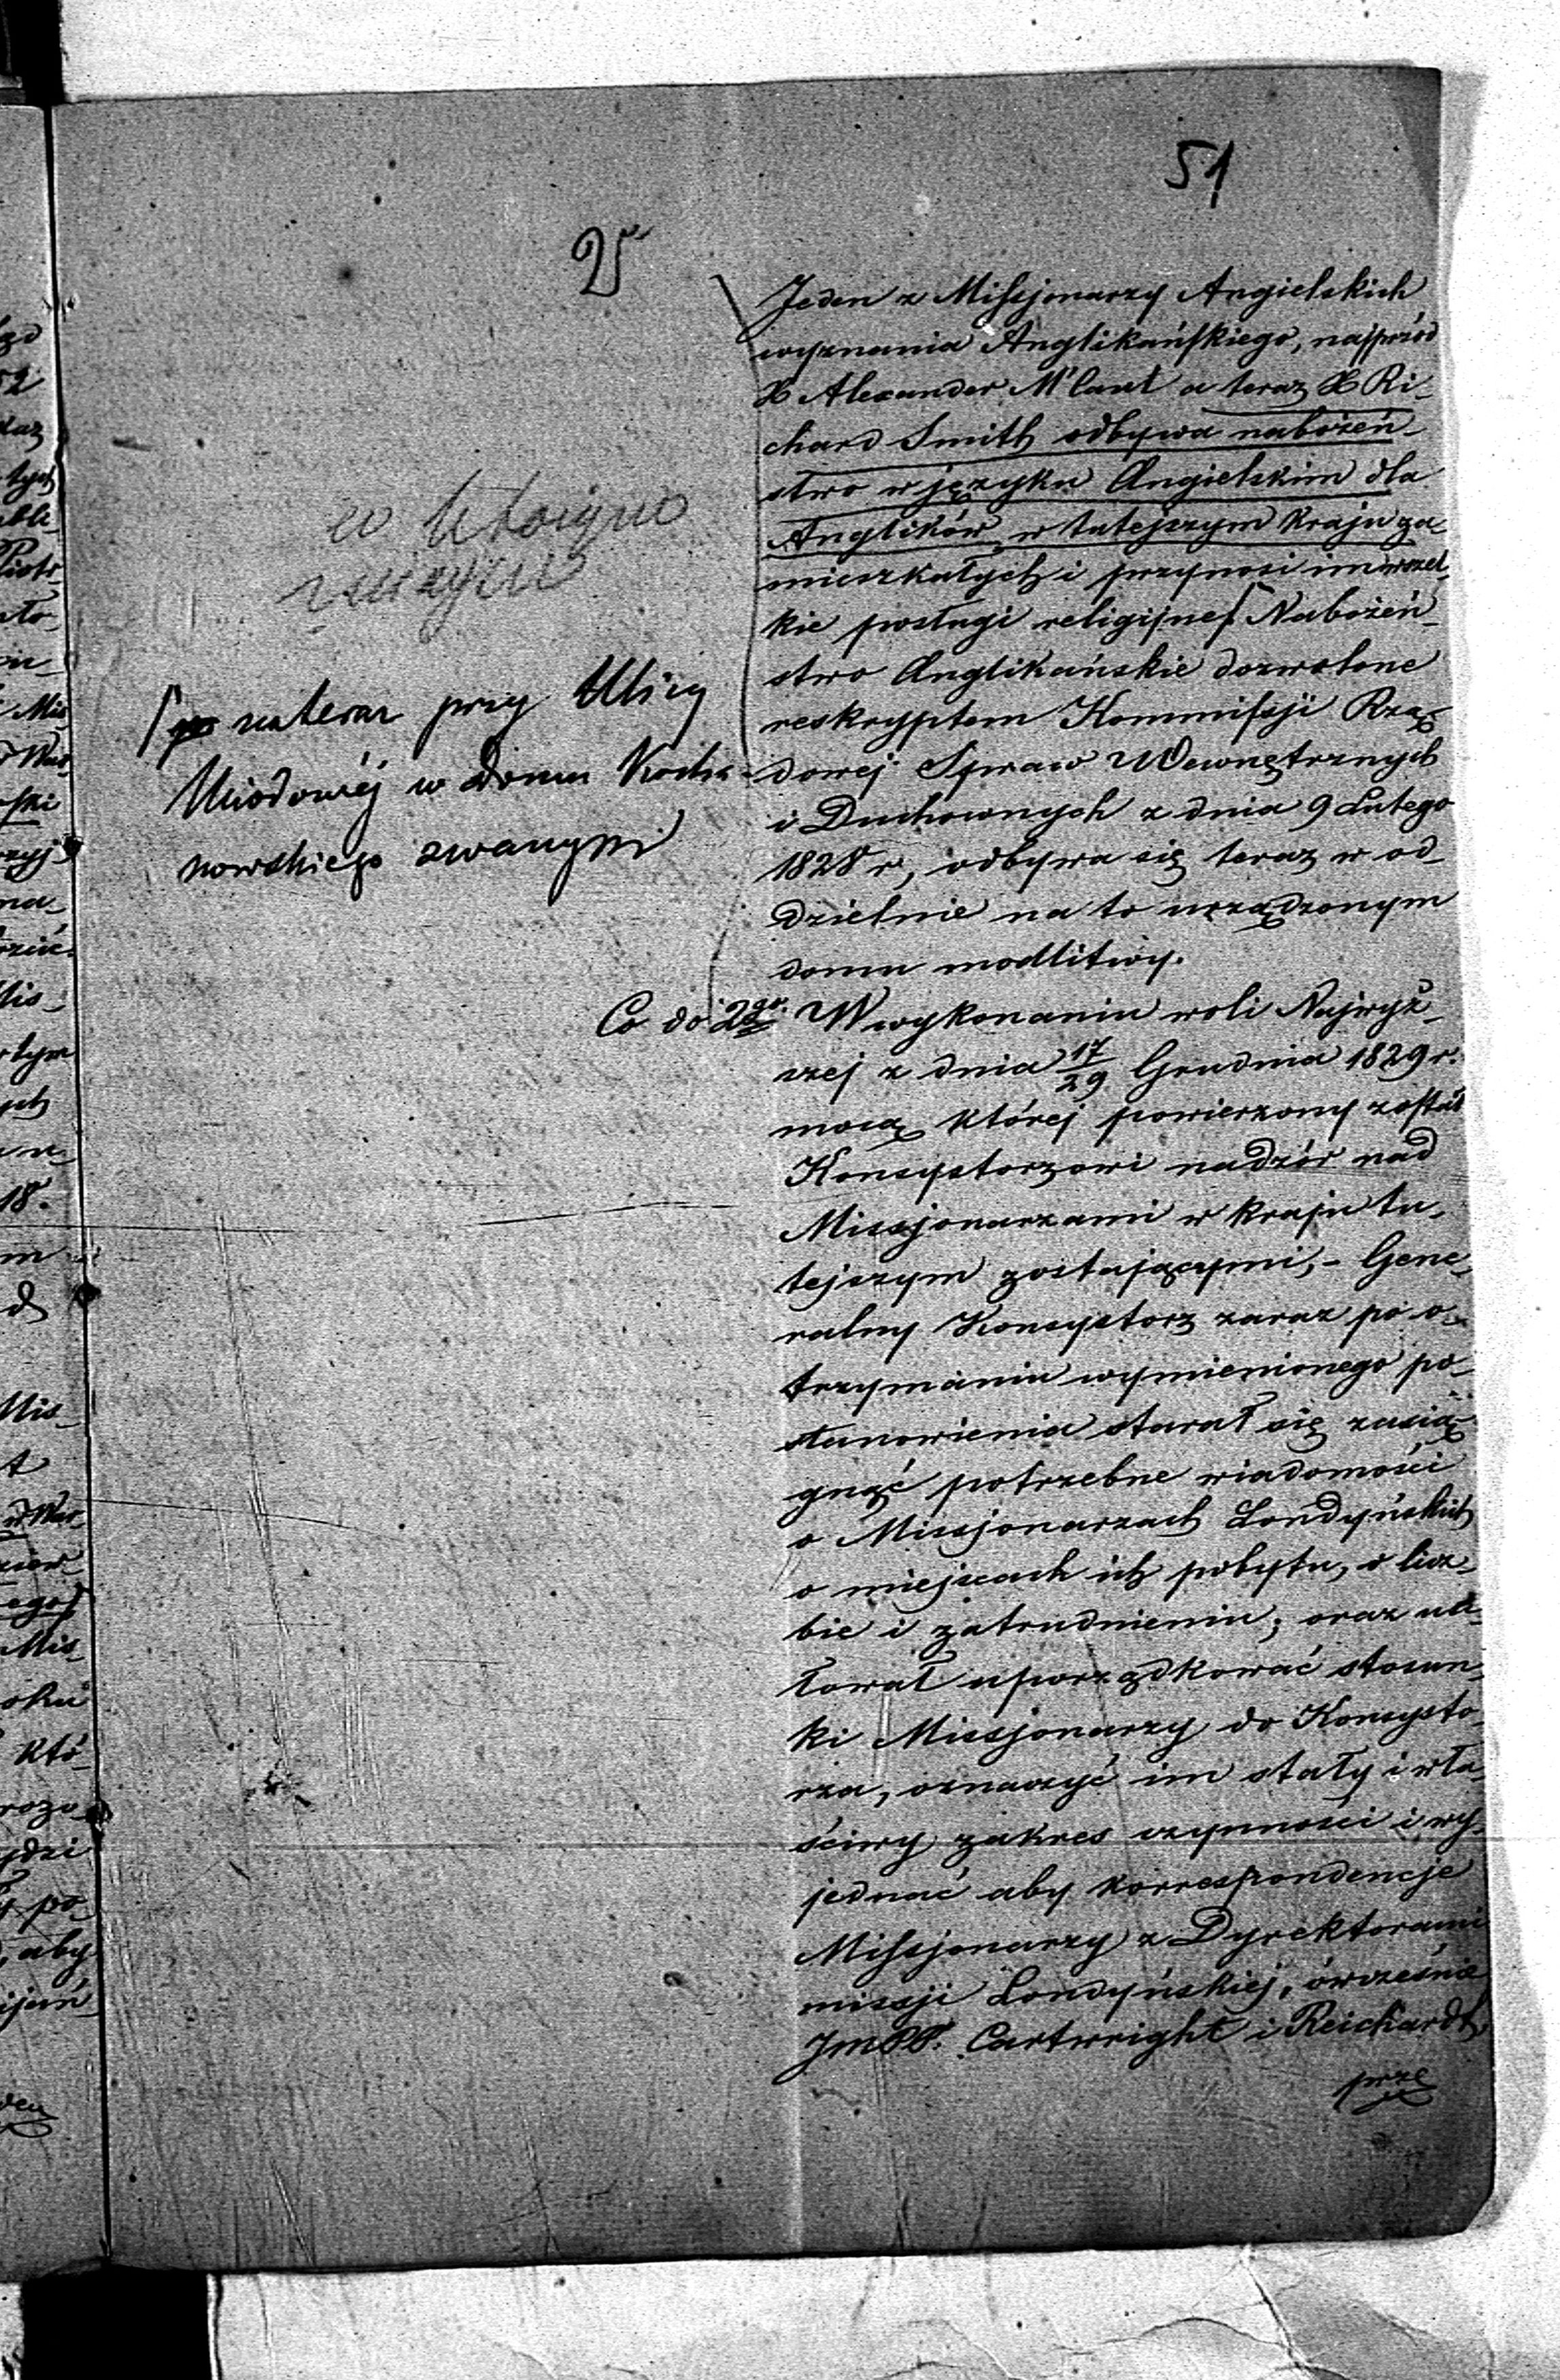 51
25
Jeden z Missjonarzy Angielskich
wyznania Anglikańskiego, najprzód
X Alexander M'Caul a teraz X Ri-
chard Smith odbywa nabożeń-
stwo w języku Angielskim dla
Anglików w tutejszym kraju za-
mieszkałych i przynosi im wszel-
kie posługi religijne Nabożeń-
stwo Anglikańskie dozwolone
reskryptem Kommissji Rzą-
dowej Spraw Wewnętrznych
i Duchownych z dnia 9 Lutego
1828 r, odbywa się teraz w od-
dzielnie na to urządzonym
domu modlitwy.
teraz przy Ulicy
Miodowéj w domu Kocha-
nowskiego zwanym
Co do 2go W wykonaniu woli Najwyż-
szej z dnia 17/29 Grudnia 1829 r.
mocą której powierzony został
Konsystorzowi nadzór nad
Missjonarzami w kraju tu-
tejszym zostającymi,- Gene-
ralny Konsystorz zaraz po o-
trzymaniu wymienionego po-
stanowienia starał się zasią-
gnąć potrzebne wiadomości
o Missjonarzach Londyńskich
o miejscach ich pobytu, o licz-
bie i zatrudnieniu; oraz usi-
łował uporządkować stosun-
ki Missjonarzy do Konsysto-
rza, oznaczyć im stały i wła-
ściwy zakres czynności i wy-
jednać aby korrespondencje
Missjonarzy z Dyrektorami
missji Londyńskiej, ówcześnie
JmPP. Cartwright i Reichardt,
prze